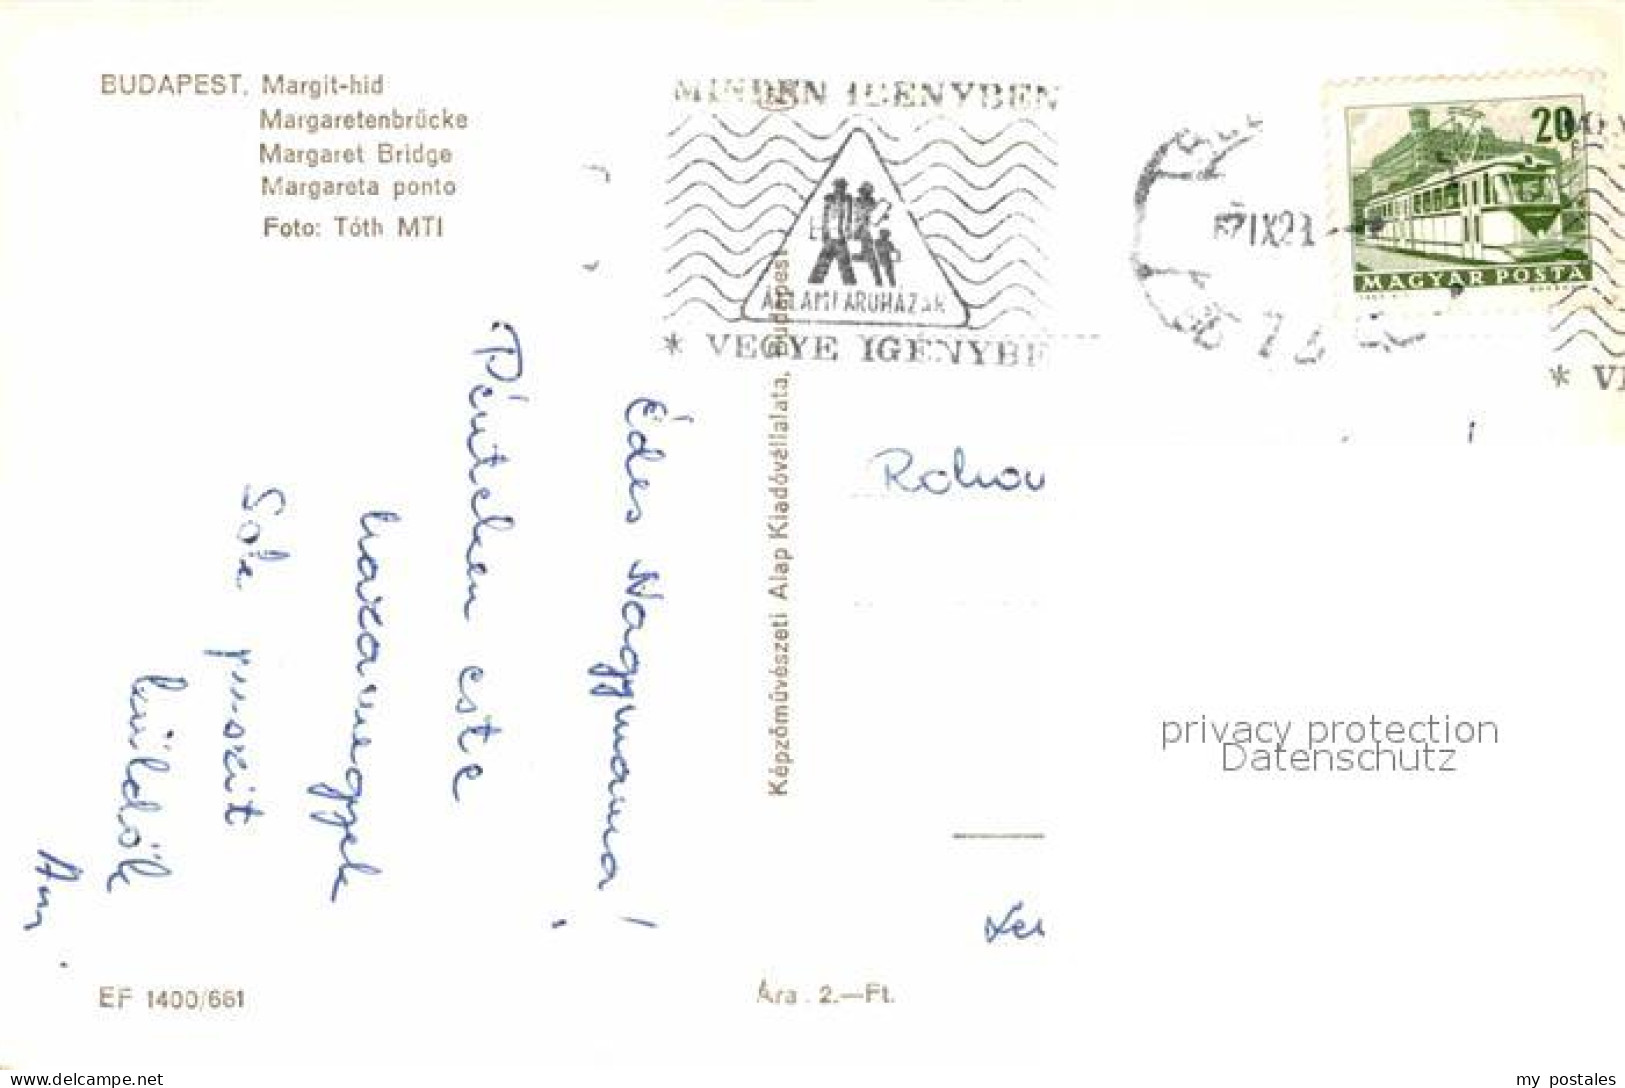 BUDAPEST. Margit-hid
Margaretenbrücke
Margaret Bridge
Margareta ponto
Foto: Tóth MTI
MINDEN IGÉNYBEN
ÁLLAMI ÁRUHÁZAK
* VEGYE IGÉNYBE
IX 21
20
MAGYAR POSTA
* VE
Édes Nagymama!
Pénteken este
hazamegyek
Sok puszit
küldök
Képzőművészeti Alap Kiadóvállalata, Budapest
privacy protection
Datenschutz
EF 1400/661
Ára: 2.—Ft.
delcampe.net
my_postales